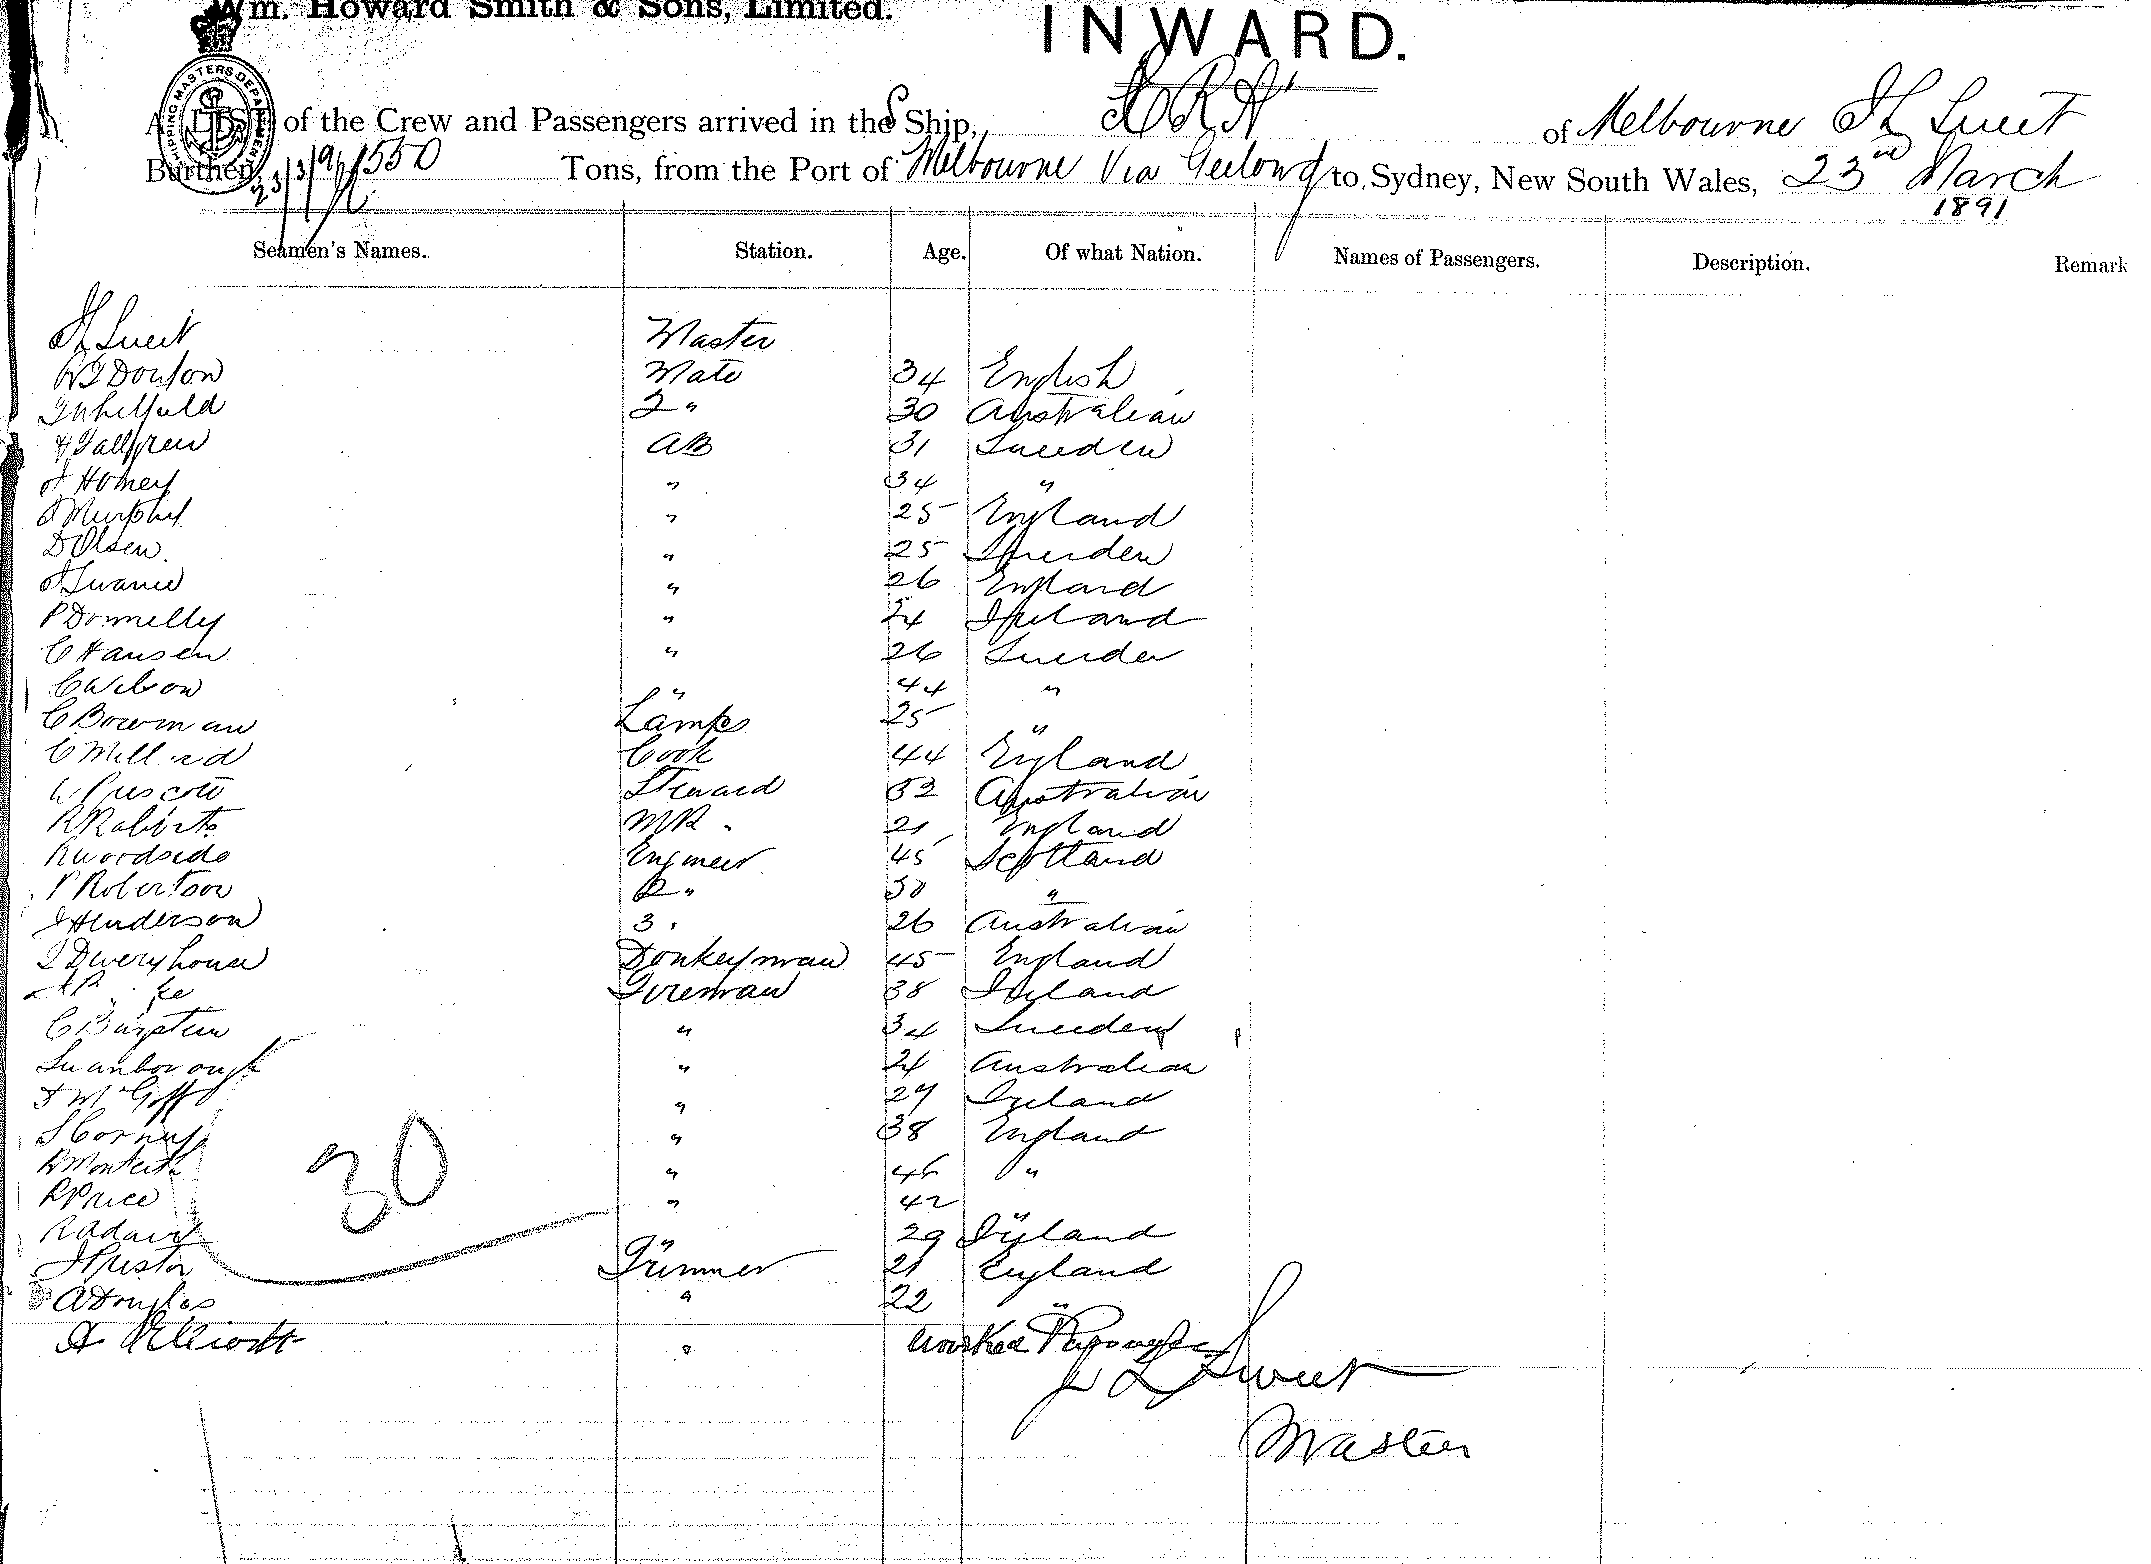 Wm. Howard Smith & Sons, Limited.
INWARD.
SHIPPING MASTERS DEPARTMENT
A LIST of the Crew and Passengers arrived in the S Ship, of Melbourne J L Sweet
Burthen, 1550 Tons, from the Port of Melbourne Via Geelong to Sydney, New South Wales, 23rd March
23/3/91
1891
Seamen's Names. Station. Age. Of what Nation. Names of Passengers. Description. Remark
J L Sweit Master
Mate 34 English
2 " 30 Australian
AB 31 Sweden
J Homey " 34 "
J Murphy " 25 England
D Olsen " 25 Sweden
J Swanie " 26 England
P Donnelly " 24 Ireland
C Hansen " 26 Sweden
C Wilson " 44 "
C Bowman Lamps 25 "
C Mill rd Cook 44 England
W Prescott Steward 32 Australian
R Roberts MR 21 England
R Woodside Engineer 45 Scotland
P Robertson 2 " 30 "
J Henderson 3 " 26 Australian
Deweryhouse Donkeyman 45 England
Fireman 38 Ireland
C " 34 Sweden
Swanborough " 24 Australian
" 27 Ireland
S Corney " 38 England
R Monteith " 46 "
R Price " 42 "
R Adair " 29 Ireland
J Preston Trimmer 21 England
A Douglas " 22 "
A Elliott " Worked Passage
30
J L Sweet
Master